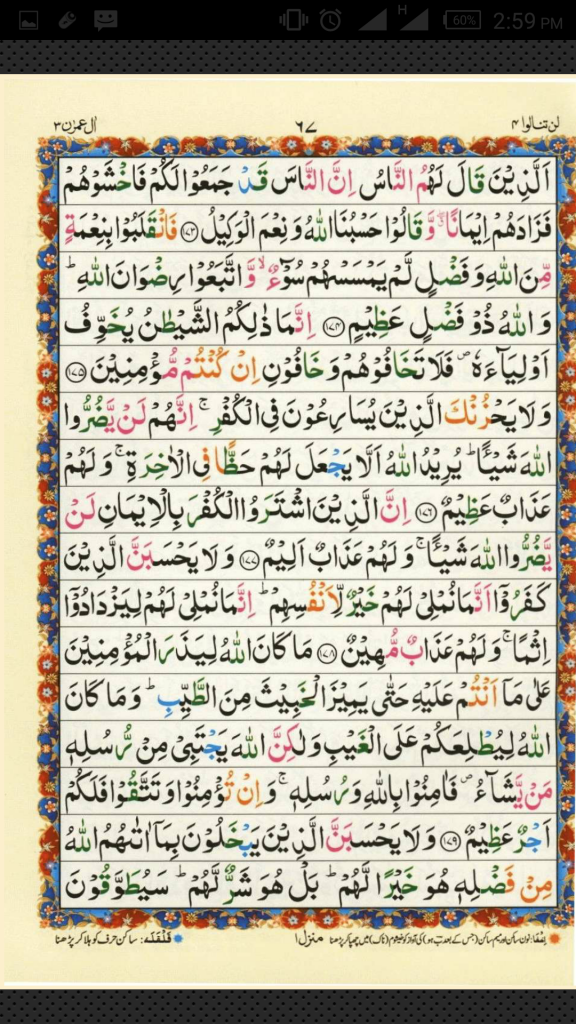 60% 2:59 PM
H
لن تنالوا ۴
۶۷
اٰل عمرٰن ۳
اَلَّذِيْنَ قَالَ لَهُمُ النَّاسُ اِنَّ النَّاسَ قَدْ جَمَعُوْا لَكُمْ فَاخْشَوْهُمْ
فَزَادَهُمْ اِيْمَانًا ۖ وَّ قَالُوْا حَسْبُنَا اللّٰهُ وَ نِعْمَ الْوَكِيْلُ ﴿۱۷۳﴾ فَانْقَلَبُوْا بِنِعْمَةٍ
مِّنَ اللّٰهِ وَ فَضْلٍ لَّمْ يَمْسَسْهُمْ سُوْٓءٌ ۙ وَّ اتَّبَعُوْا رِضْوَانَ اللّٰهِ ؕ
وَ اللّٰهُ ذُوْ فَضْلٍ عَظِيْمٍ ﴿۱۷۴﴾ اِنَّمَا ذٰلِكُمُ الشَّيْطٰنُ يُخَوِّفُ
اَوْلِيَآءَهٗ ۪ فَلَا تَخَافُوْهُمْ وَ خَافُوْنِ اِنْ كُنْتُمْ مُّؤْمِنِيْنَ ﴿۱۷۵﴾
وَ لَا يَحْزُنْكَ الَّذِيْنَ يُسَارِعُوْنَ فِي الْكُفْرِ ۚ اِنَّهُمْ لَنْ يَّضُرُّوا
اللّٰهَ شَيْـًٔا ؕ يُرِيْدُ اللّٰهُ اَلَّا يَجْعَلَ لَهُمْ حَظًّا فِي الْاٰخِرَةِ ۚ وَ لَهُمْ
عَذَابٌ عَظِيْمٌ ﴿۱۷۶﴾ اِنَّ الَّذِيْنَ اشْتَرَوُا الْكُفْرَ بِالْاِيْمَانِ لَنْ
يَّضُرُّوا اللّٰهَ شَيْـًٔا ۚ وَ لَهُمْ عَذَابٌ اَلِيْمٌ ﴿۱۷۷﴾ وَ لَا يَحْسَبَنَّ الَّذِيْنَ
كَفَرُوْٓا اَنَّمَا نُمْلِيْ لَهُمْ خَيْرٌ لِّاَنْفُسِهِمْ ؕ اِنَّمَا نُمْلِيْ لَهُمْ لِيَزْدَادُوْٓا
اِثْمًا ۚ وَ لَهُمْ عَذَابٌ مُّهِيْنٌ ﴿۱۷۸﴾ مَا كَانَ اللّٰهُ لِيَذَرَ الْمُؤْمِنِيْنَ
عَلٰى مَآ اَنْتُمْ عَلَيْهِ حَتّٰى يَمِيْزَ الْخَبِيْثَ مِنَ الطَّيِّبِ ؕ وَ مَا كَانَ
اللّٰهُ لِيُطْلِعَكُمْ عَلَى الْغَيْبِ وَ لٰكِنَّ اللّٰهَ يَجْتَبِيْ مِنْ رُّسُلِهٖ
مَنْ يَّشَآءُ ۪ فَاٰمِنُوْا بِاللّٰهِ وَ رُسُلِهٖ ۚ وَ اِنْ تُؤْمِنُوْا وَ تَتَّقُوْا فَلَكُمْ
اَجْرٌ عَظِيْمٌ ﴿۱۷۹﴾ وَ لَا يَحْسَبَنَّ الَّذِيْنَ يَبْخَلُوْنَ بِمَآ اٰتٰىهُمُ اللّٰهُ
مِنْ فَضْلِهٖ هُوَ خَيْرًا لَّهُمْ ؕ بَلْ هُوَ شَرٌّ لَّهُمْ ؕ سَيُطَوَّقُوْنَ
اِخفَا: نون ساکن اور میم ساکن (جس کے بعد ب ہو) کی آواز کو خیشوم (ناک) میں چھپا کر پڑھنا منزل ۱ قَلْقَلَه: ساکن حرف کو ہلا کر پڑھنا